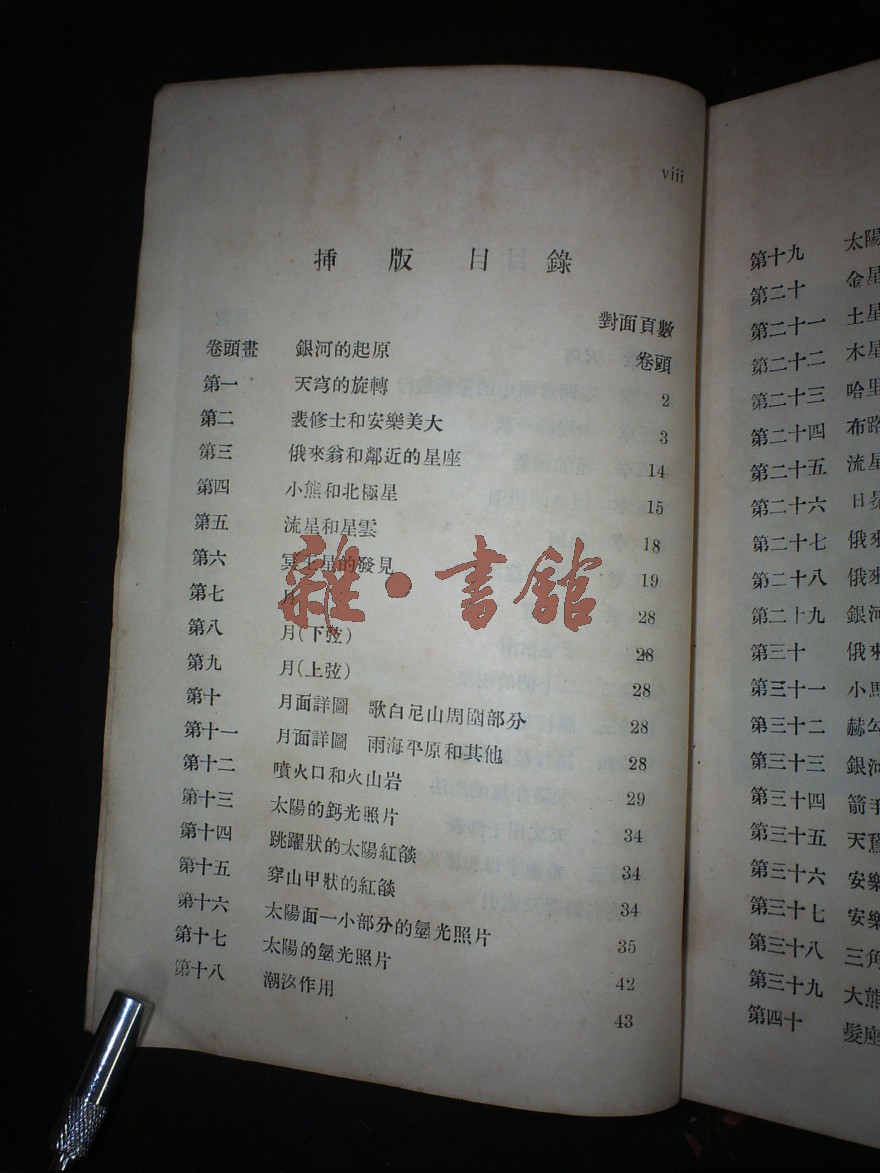 viii
挿版目錄
對面頁數
卷頭畫 銀河的起原 卷頭
第一 天穹的旋轉 2
第二 裴修士和安樂美大 3
第三 俄來翁和鄰近的星座 14
第四 小熊和北極星 15
第五 流星和星雲 18
第六 冥王星的發見 19
第七 月 28
第八 月(下弦) 28
第九 月(上弦) 28
第十 月面詳圖 歌白尼山周圍部分 28
第十一 月面詳圖 雨海平原和其他 28
第十二 噴火口和火山岩 29
第十三 太陽的鈣光照片 34
第十四 跳躍狀的太陽紅燄 34
第十五 穿山甲狀的紅燄 34
第十六 太陽面一小部分的氫光照片 35
第十七 太陽的氫光照片 42
第十八 潮汐作用 43
雜·書館
第十九 太陽
第二十 金星
第二十一 土星
第二十二 木星
第二十三 哈里
第二十四 布路
第二十五 流星
第二十六 日
第二十七 俄來
第二十八 俄來
第二十九 銀河
第三十 俄來
第三十一 小馬
第三十二 赫
第三十三 銀河
第三十四 箭
第三十五 天
第三十六 安樂
第三十七 安樂
第三十八 三角
第三十九 大熊
第四十 髮座